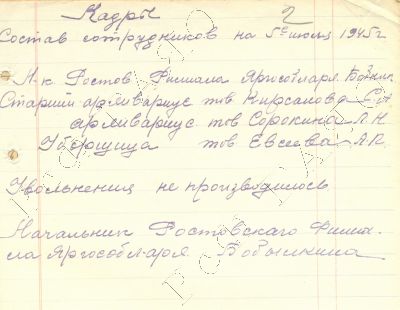 Кадры 2
Состав сотрудников на 5е июля 1945г
Н-к Ростов Филиала Яргособларх.
Старший архивариус тов Кирсанова
архивариус тов Сорокина Л.Н.
Уборщица тов Евсеева А.Р.
Увольнения не производилось
Начальник Ростовскаго Филиа-
ла Яргособл-арх.